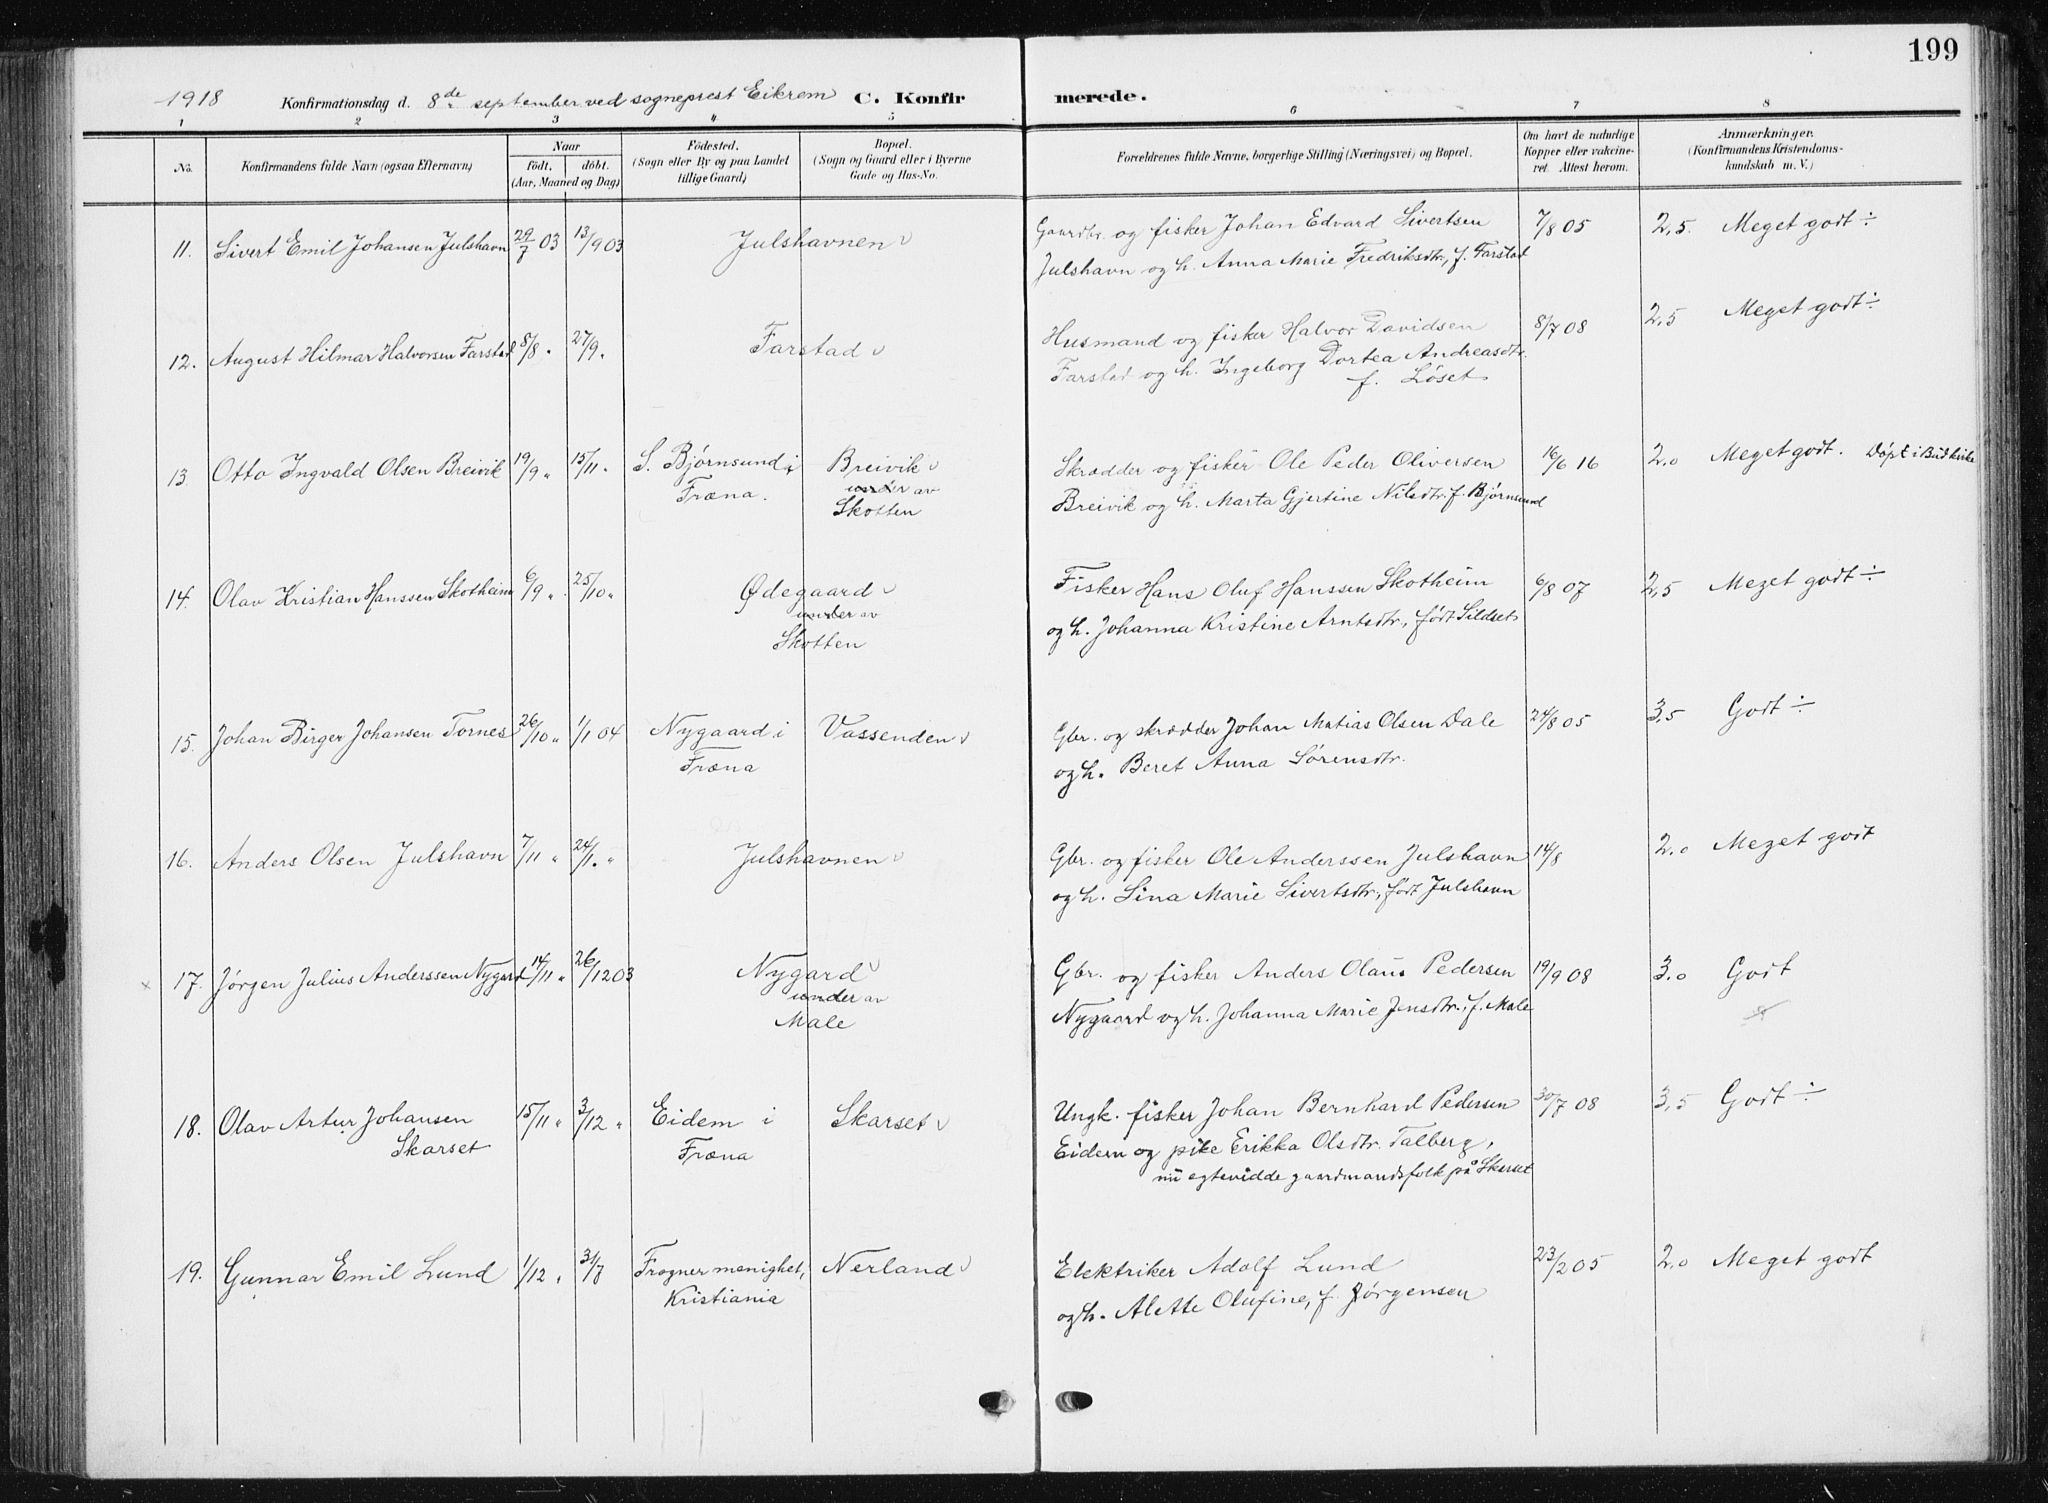 199
1918 Konfirmationsdag d. 8de september ved sogneprest Eikrem C. Konfirmerede.
1 2 3 4 5 6 7 8
No. Konfirmandens fulde Navn (ogsaa Efternavn) Naar født. døbt. (Aar, Maaned og Dag) Fødested. (Sogn eller By og paa Landet tillige Gaard) Bopæl. (Sogn og Gaard eller i Byerne Gade og Hus-No. Forældrenes fulde Navne, borgerlige Stilling (Næringsvei) og Bopæl. Om havt de naturlige Kopper eller vakcineret. Attest herom. Anmærkninger. (Konfirmandens Kristendomskundskab m. V.)
11. Sivert Emil Johansen Julshavn 29/7 03 13/9 03 Julshavnen Gaardbr. og fisker Johan Edvard Sivertsen 7/8 05 2,5 Meget godt ÷
Julshavn og h. Anna Marie Fredriksdtr., f. Farstad
12. August Hilmar Halvorsen Farstad 8/8 " 27/9 " Farstad Husmand og fisker Halvor Davidsen 8/7 08 2,5 Meget godt ÷
Farstad og h. Ingeborg Dortea Andreasdtr.
f. Løset
13 Otto Ingvald Olsen Breivik 19/9 " 15/11 " S. Bjørnsund i Breivik Skrædder og fisker Ole Peder Oliversen 16/6 16 2.0 Meget godt. Døpt i Bud kirke
Fræna. under av Breivik og h. Marta Gjertine Nilsdtr. f. Bjørnsund
Skotten
14. Olav Kristian Hanssen Skotheim 6/9 " 25/10 " Ødegaard Fisker Hans Oluf Hanssen Skotheim 6/8 07 2,5 Meget godt ÷
under av og h. Johanna Kristine Arntsdtr., født Sildset
Skotten
15. Johan Birger Johansen Tornes 26/10 " 1/1 04 Nygaard i Vassenden Gbr. og skrædder Johan Matias Olsen Dale 24/8 05 3,5 Godt ÷
Fræna og h. Beret Anna Sørensdtr.
16. Anders Olsen Julshavn 7/11 " 24/1. " Julshavnen Gbr. og fisker Ole Anderssen Julshavn 14/8 2.0 Meget godt
og h. Sina Marie Sivertsdtr., født Julshavn
17. Jørgen Julius Anderssen Nygard 14/11 " 26/12 03 Nygard Gbr. og fisker Anders Olaus Pedersen 19/9 08 3.0 Godt
under av Nygaard og h. Johanna Marie Jensdtr., f. Male
Male
18. Olav Artur Johansen 15/11 " 3/12 " Eidem i Skarset Ungk. fisker Johan Bernhard Pedersen 30/7 08 3,5 Godt ÷
Skarset Fræna Eidem og pike Erikka Olsdtr. Talberg,
nu egteviede gaardmandsfolk på Skarset
19. Gunnar Emil Lund 1/12 " Frogner menighet, Nerland Elektriker Adolf Lund 23/2 05 2.0 Meget godt
Kristiania og h. Alette Olufine, f. Jørgensen